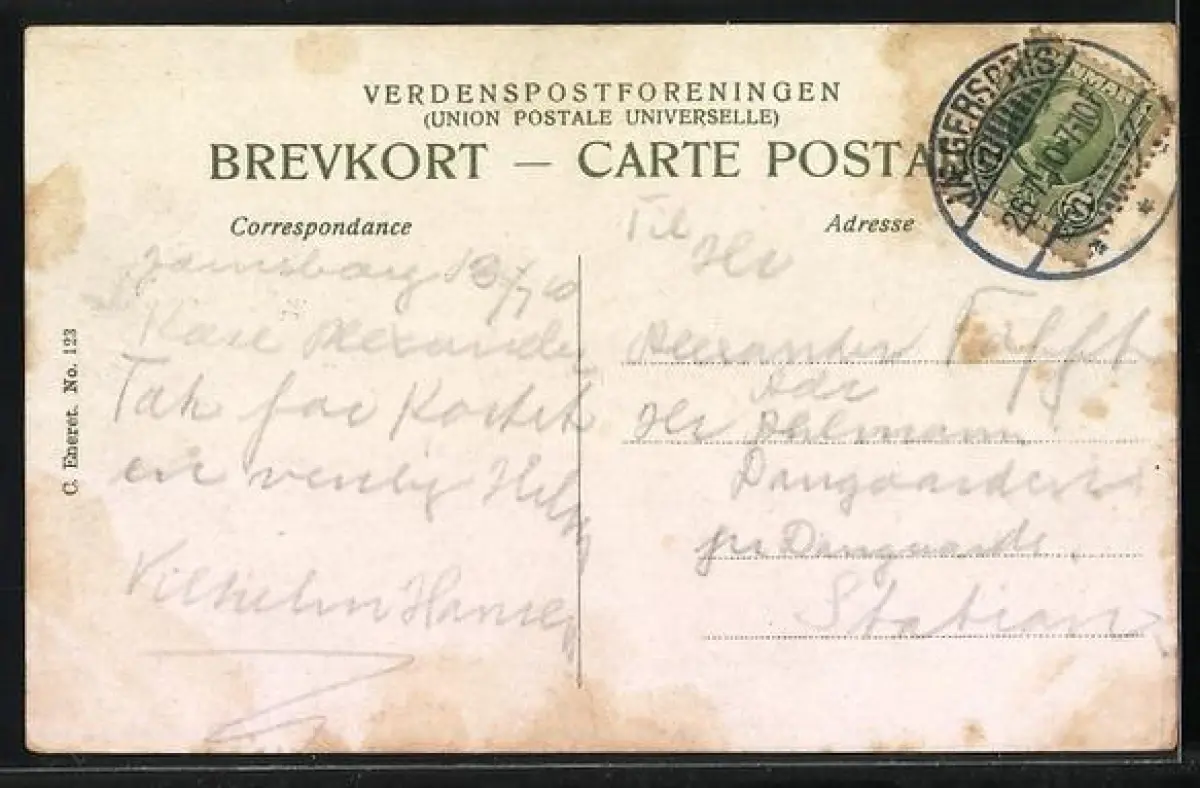 VERDENSPOSTFORENINGEN
(UNION POSTALE UNIVERSELLE)
BREVKORT — CARTE POSTA
Correspondance
Adresse
JÆGERSPRIS
26.7.10. 7-10F
C. Eneret. No. 123
Kære Alexander
Tak for Kortet
en venlig Hilsn
Vilhelm Hansen
Til
Hr
Alexander
Adr
Hr Ahlmann
pr Dangaarde
Station